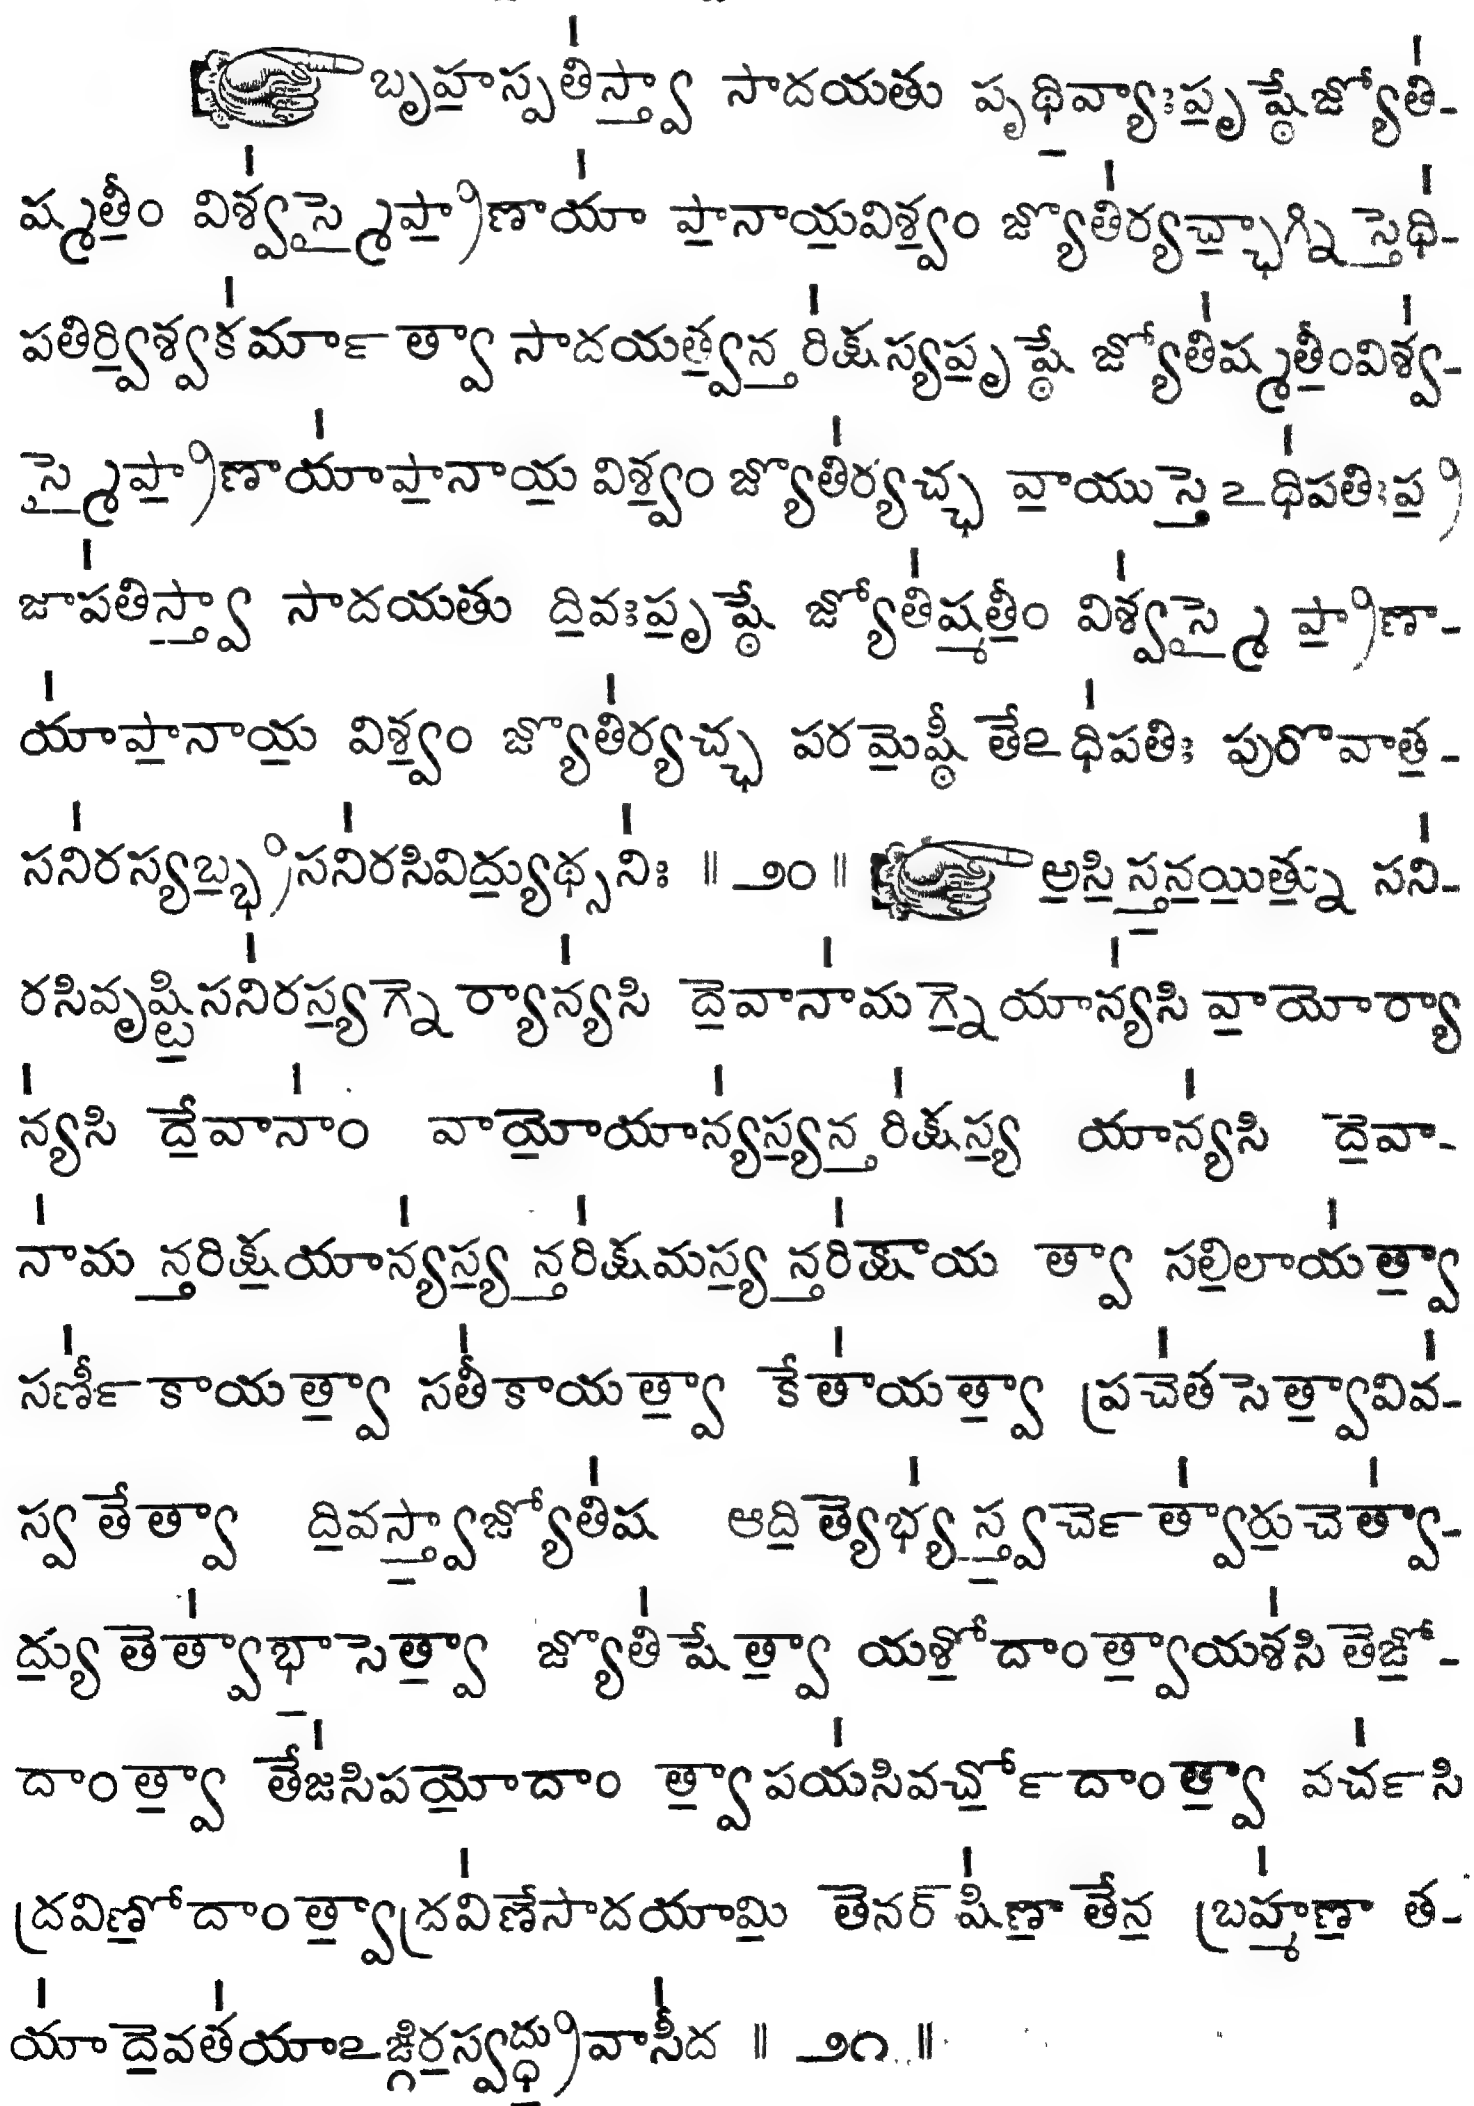 ☞ బృహ॒స్పతి॑స్త్వా సాదయతు పృథి॒వ్యాఃప్ర॒పృష్ఠేజ్యోతి॑-
ష్మ॒తీం విశ్వ॑స్మైప్రా॒ణాయా॑ పా॒నాయ॒విశ్వం జ్యోతి॑ర్యచ్ఛా॒గ్నిస్తేథి॑-
పతిర్వి॒శ్వక॑ర్మా త్వా సాదయత్వ॒న్తరి॑క్షస్యపృ॒ష్ఠే జ్యోతి॑ష్మ॒తీంవిశ్వ॑-
స్మైప్రా॒ణాయా॑పా॒నాయ॒ విశ్వం జ్యోతి॑ర్యచ్ఛ వా॒యుస్తె॒ఽధి॑పతిఃప్ర॒
జాప॑తిస్త్వా సాదయతు ది॒వఃపృ॒ష్ఠే జ్యోతి॑ష్మ॒తీం విశ్వ॑స్మై ప్రా॒ణా-
యా॑పా॒నాయ॒ విశ్వం జ్యోతి॑ర్యచ్ఛ పరమె॒ష్ఠీ తేఽధి॑పతిః పురొవాత॒-
సని॑రస్యబ్భ్ర॒సని॑రసివిద్యు॒థ్సని॑ః ॥ ౨౦ ॥ ☞ అ॒సి॒స్త॒న॒యి॒త్ను సని॑-
రసివృష్టి॒సని॑రస్య॒గ్నె ర్యాన్య॑సి దె॒వానా॑మగ్నె॒యాన్య॑సి వా॒యోర్యా
న్య॑సి దే॒వానాం॑ వాయో॒యాన్య॑స్య॒న్తరి॑క్షస్య॒ యాన్య॑సి దె॒వా-
నా॑మ న్త॒రిక్ష॒యాన్య॑స్య॒న్తరి॑క్షమస్య॒న్తరి॑క్షాయ త్వా సలి॒లాయ॑త్వా॒
సర్ణీ॑కాయత్వా॒ సతీ॑కాయత్వా॒ కేతా॑యత్వా॒ ప్రచె॑తసెత్వా॒వివ॑-
స్వతేత్వా ది॒వస్త్వా॒జ్యోతి॑ష ఆది॒త్యెభ్య॑స్త్వ॒ర్చె త్వా॑రు॒చెత్వా॑-
ద్యు॒తెత్వా॑భా॒సెత్వా॒ జ్యోతి॑షేత్వా॒ యశో॒దాంత్వా॒యశ॑సి తెజో॒-
దాంత్వా॒ తేజ॑సిపయో॒దాం త్వా॒పయ॑సివర్చో॒దాంత్వా॒ వర్చ॑సి
ద్రవిణో॒దాంత్వా॒ద్రవి॑ణేసాదయామి॒ తెనర్షి॑ణా॒ తేన॒ బ్రహ్మ॑ణా॒ త-
యా॑ దె॒వత॑యాఽఙ్గిర॒స్వద్ధ్రు॒వాసీ॑ద ॥ ౨౧ ॥